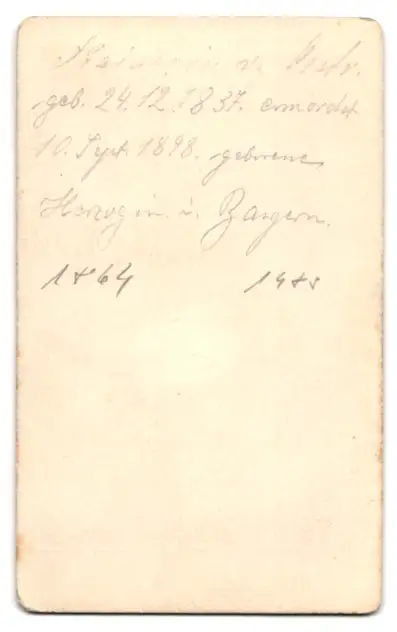 Kaiserin v. Oestr.
geb. 24.12.1837. ermordet
10. Sept. 1898. geborene
Herzogin i. Bayern.
1864 1988